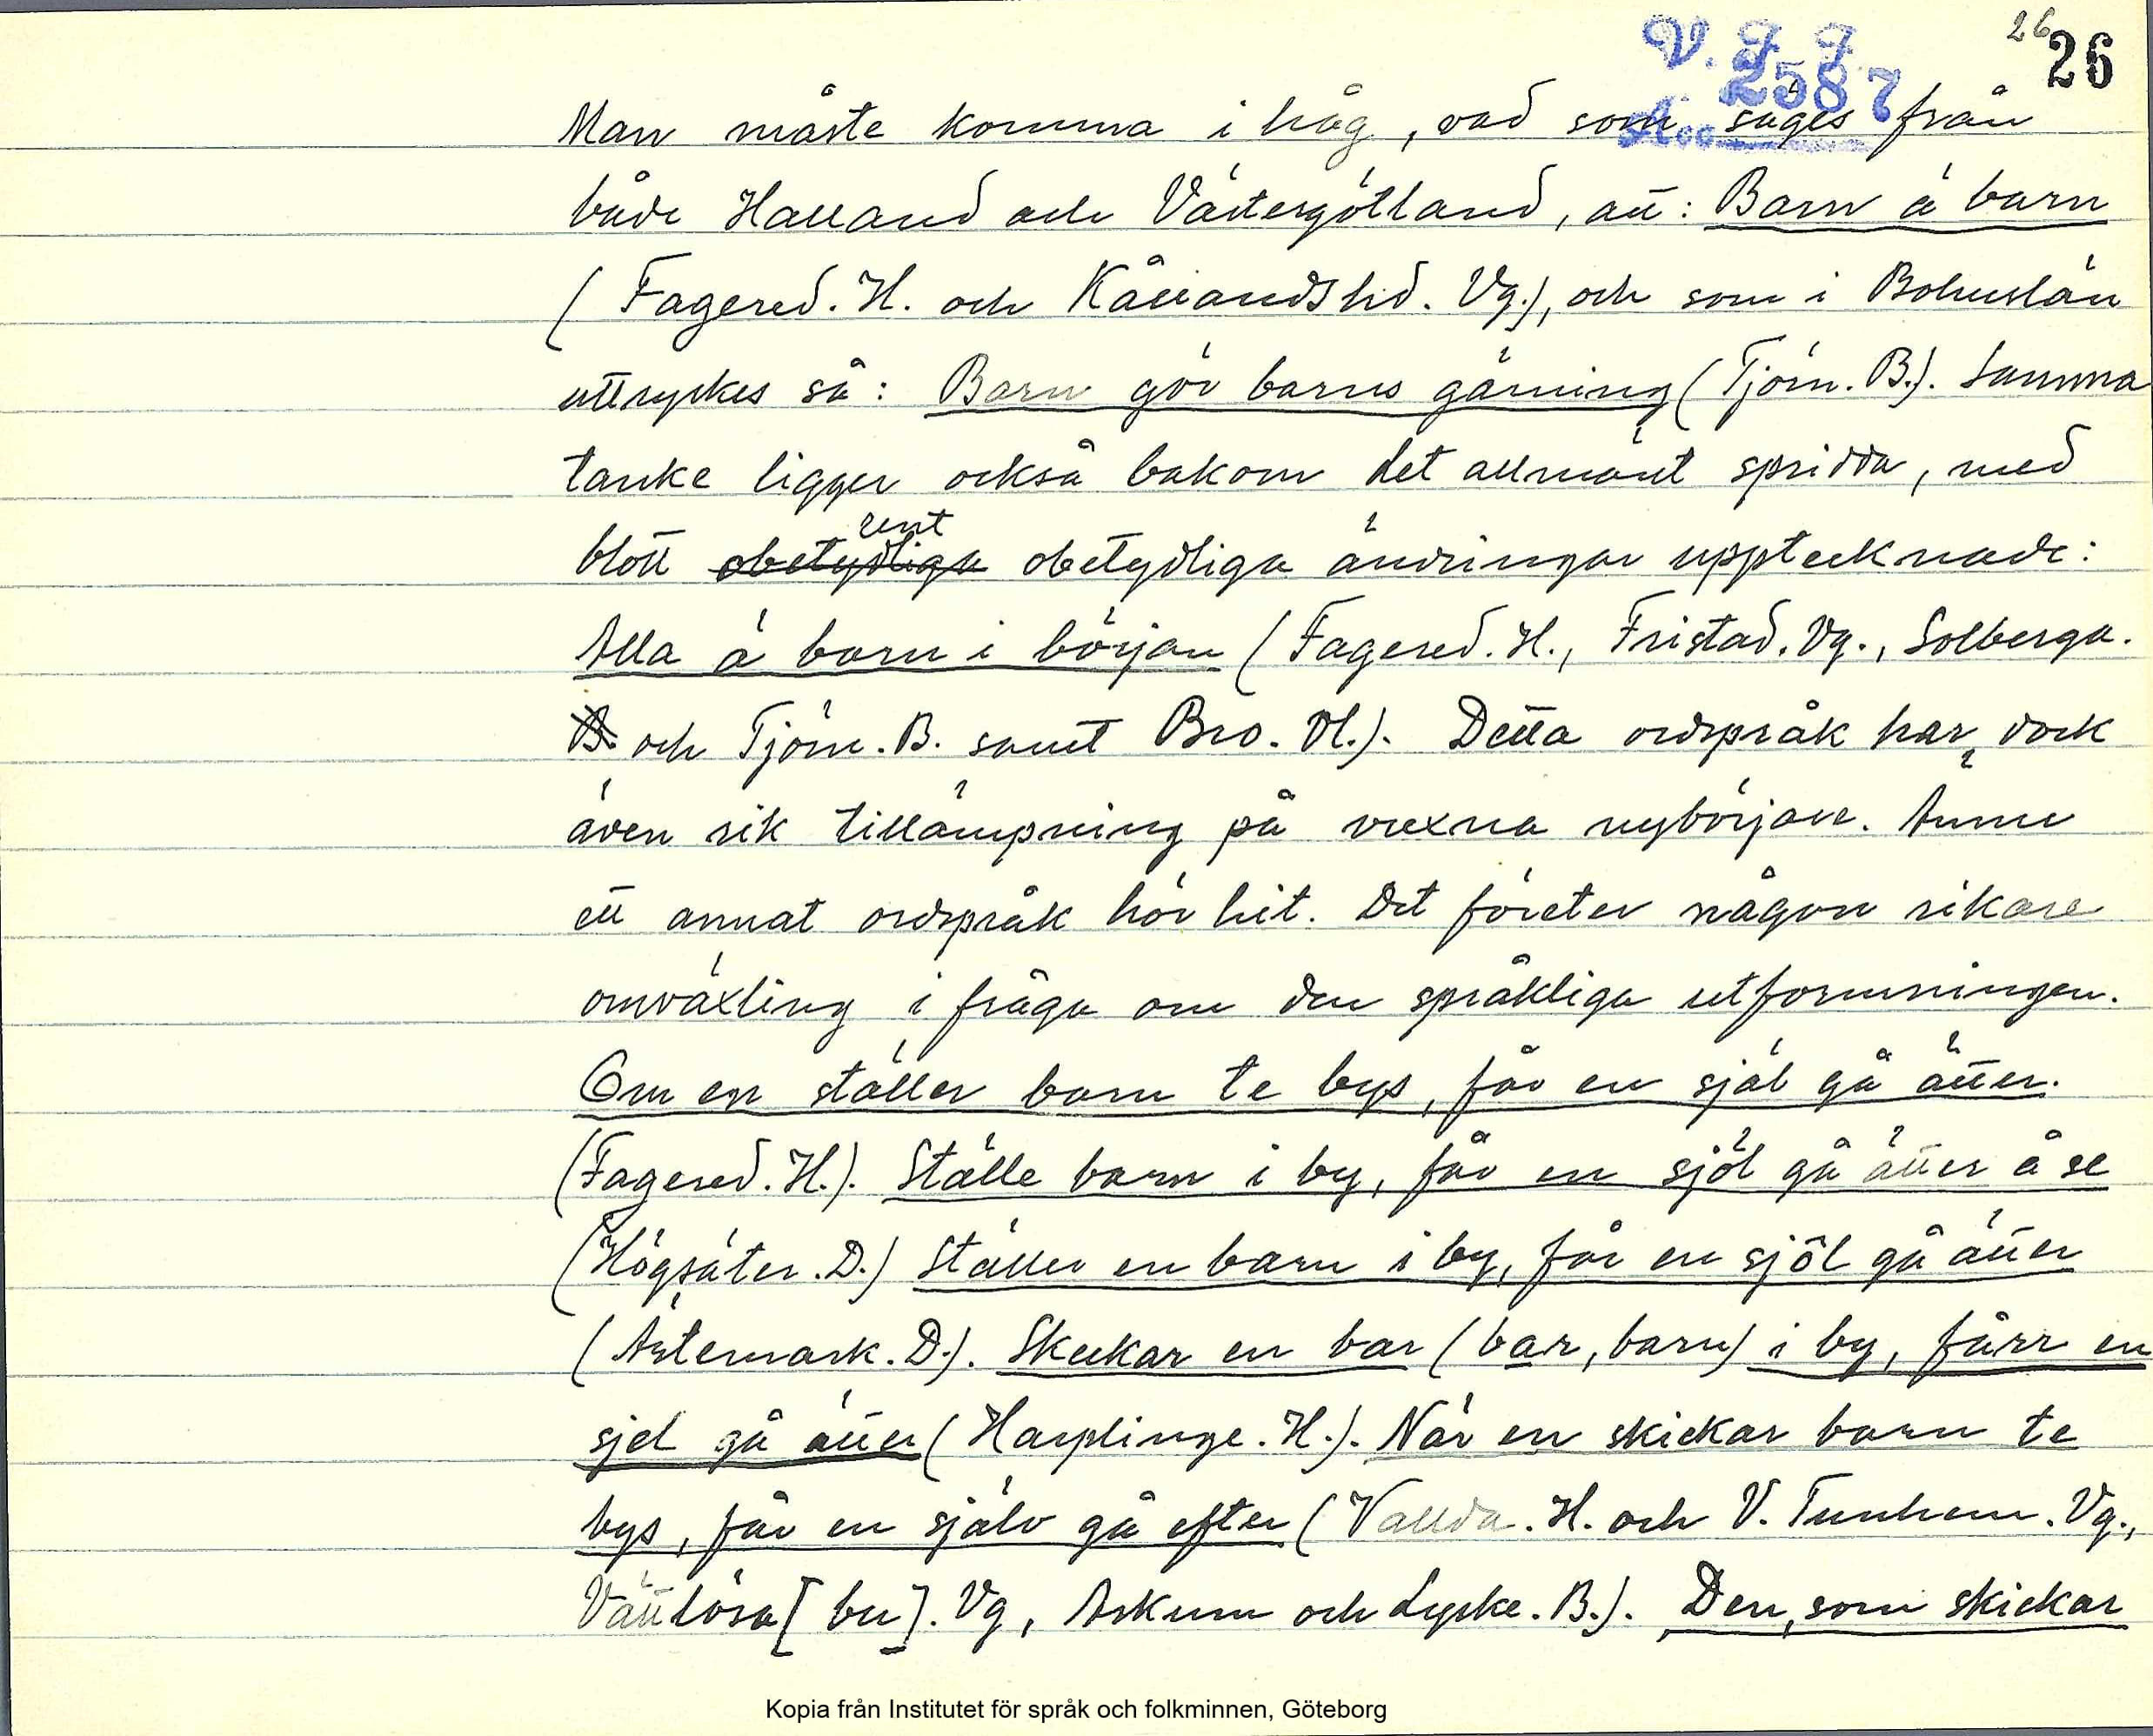 26
26
V. F. F.
2587
Acc
Man måste komma i håg, vad som säges från
både Halland och Västergötland, att: Barn ä barn
(Fagered. H. och Kållandshd. Vg.), och som i Bohuslän
uttryckes så: Barn gör barns gärning (Tjörn. B.). Samma
tanke ligger också bakom det allmänt spridda, med
rent
blott obetydliga obetydliga ändringar upptecknade:
Alla ä barn i början (Fagered. H., Fristad. Vg., Solberga.
B. och Tjörn. B. samt Bro. Dl.). Detta ordspråk har dock
även rik tillämpning på vuxna nybörjare. Ännu
ett annat ordspråk hör hit. Det företer någon rikare
omväxling i fråga om den språkliga utformningen.
Om en ställer barn te bys, får en själ gå ätter.
(Fagered. H.). Ställe barn i by, får en sjöl gå ätter å se
(Högsäter. D.) Ställer en barn i by, får en sjöl gå ätter
(Ärtemark. D.). Skeckar en bar (bar, barn) i by, fårr en
sjel gå ätter (Harplinge. H.). När en skickar barn te
bys, får en själv gå efter (Vallda. H. och V. Tunhem. Vg.,
Vättlösa [by]. Vg, Askum och Lyske. B.). Den, som skickar
Kopia från Institutet för språk och folkminnen, Göteborg